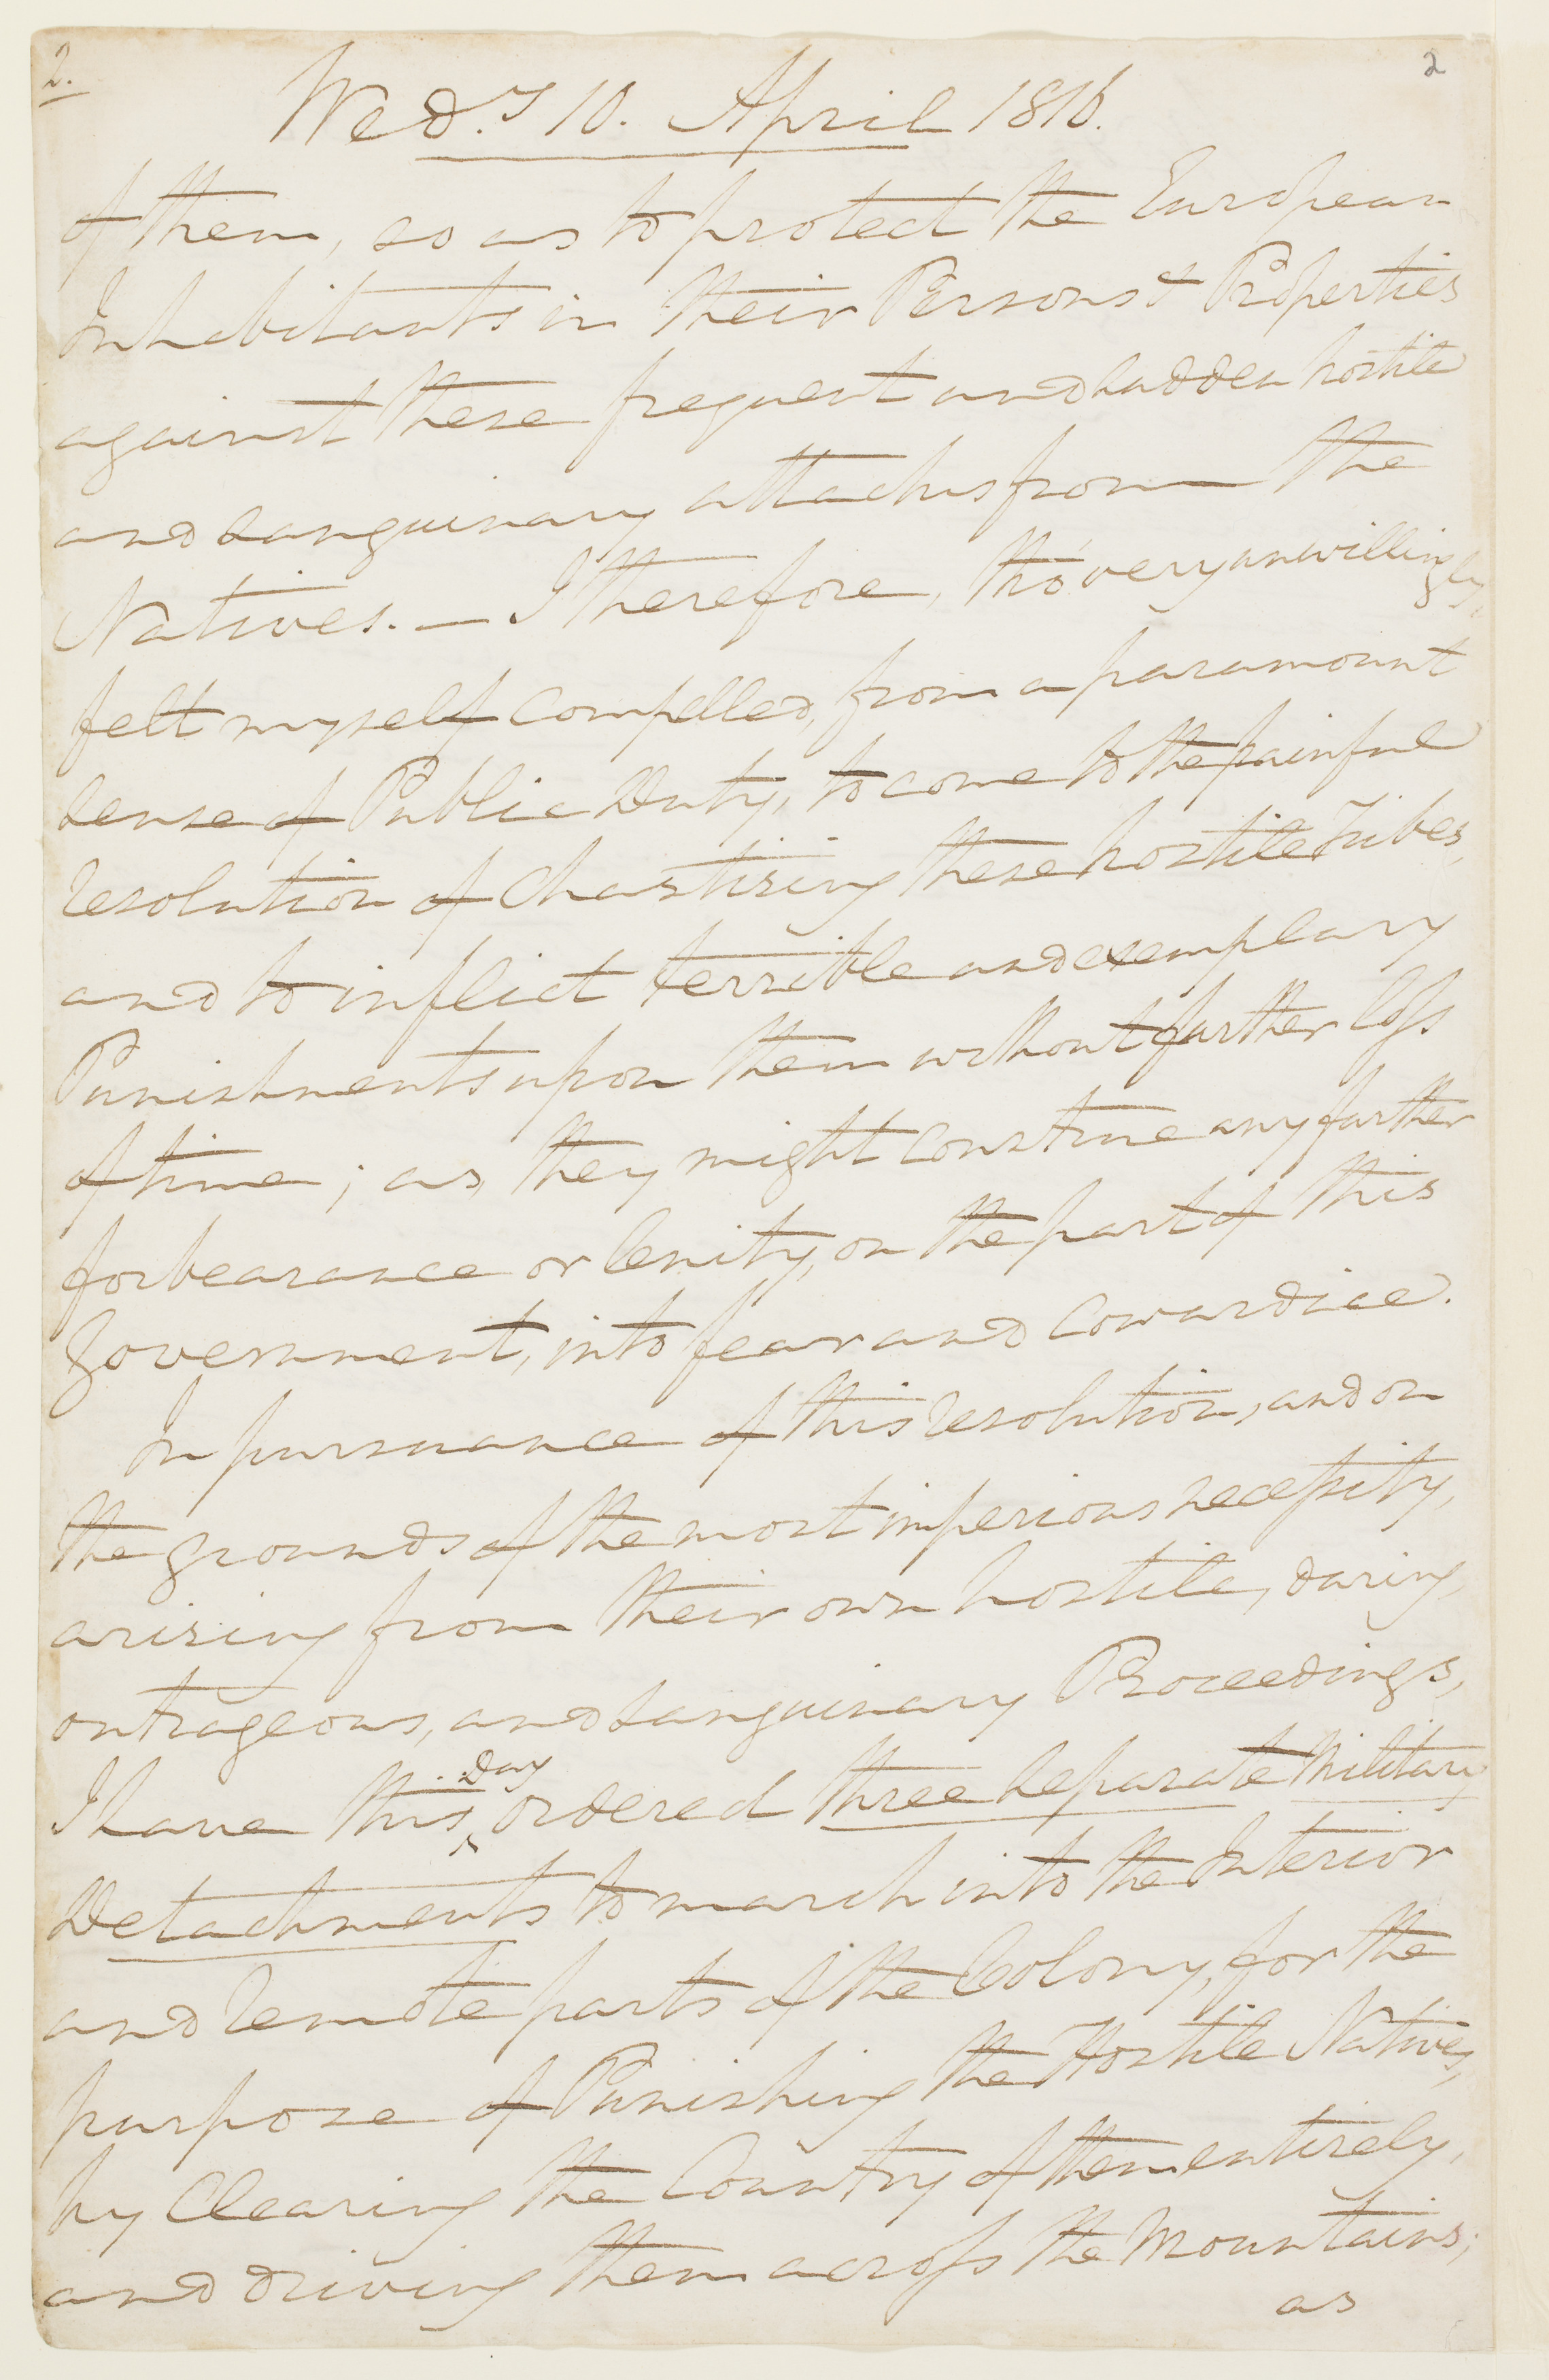 2.
2
Wed.y 10. April 1816.
of them, so as to protect the European
Inhabitants in their Persons & Properties
against these frequent and sudden hostile
and sanguinary attacks from the
Natives. — I therefore, tho' very unwillingly,
felt myself compelled, from a paramount
sense of Public Duty, to come to the painful
resolution of chastising these hostile tribes,
and to inflict terrible and exemplary
Punishments upon them without further loss
of time; as they might construe any further
forbearance or lenity, on the part of this
Government, into fear and cowardice.
In pursuance of this resolution, and on
the grounds of the most imperious necessity,
arising from their own hostile, daring,
outrageous, and sanguinary Proceedings,
I have this Day ordered three Separate Military
Detachments to march into the Interior
and remote parts of the Colony, for the
purpose of Punishing the Hostile Natives,
by clearing the Country of them entirely,
and driving them across the Mountains;
as